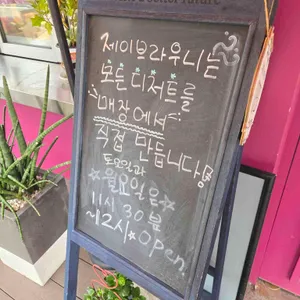 제이브라우니는
모든 디저트를
매장에서
직접 만듭니다
토요일과
월요일은
11시 30분
~12시 open